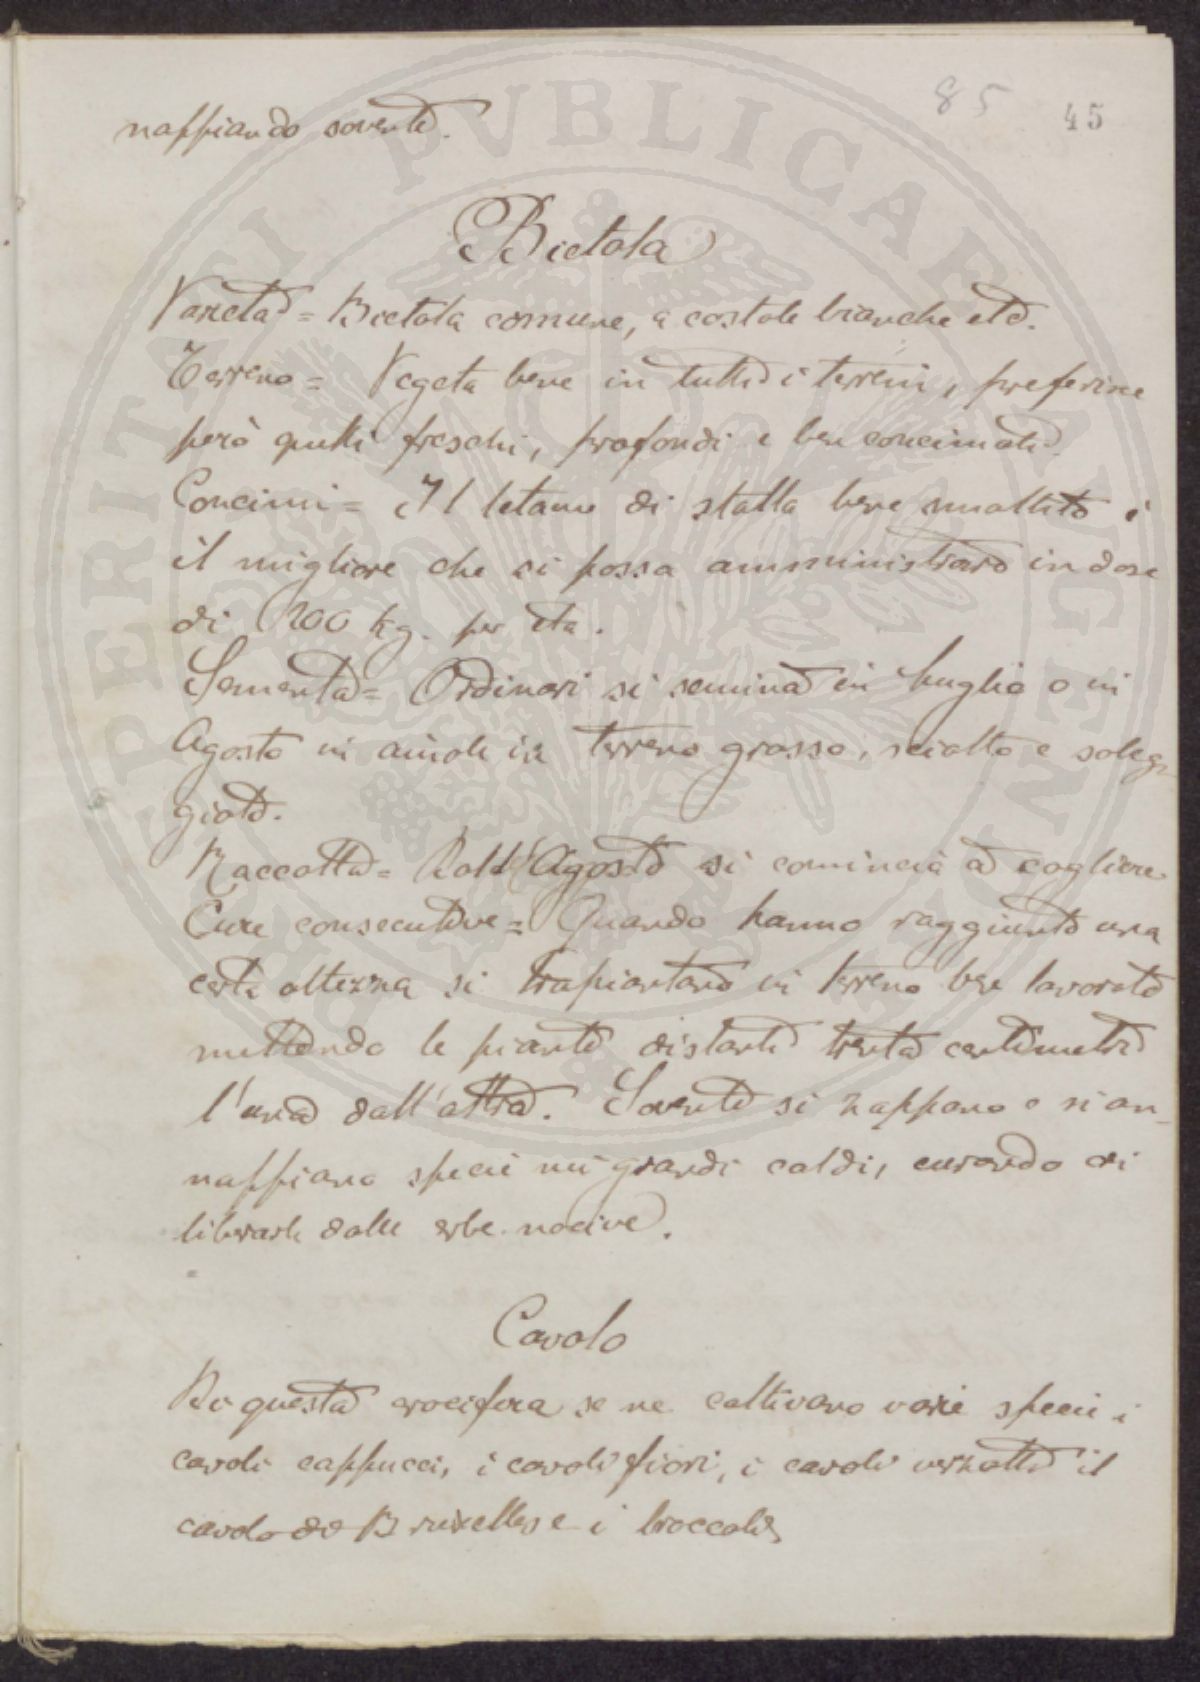 85 45
naffiando sovente.
Bietola
Varietà = Bietola comune, a costole bianche etc.
Terreno = Vegeta bene in tutti i terreni, preferisce
però quelli freschi, profondi e ben concimati.
Concimi = Il letame di stalla bene smaltito è
il migliore che si possa amministrare in dose
di 200 kg. per
Sementa = Ordinari si semina in luglio o in
Agosto in aiuole in terreno grosso, sciolto e soleg-
giato.
Raccolta = Dall'Agosto si comincia a cogliere
Cure consecutive = Quando hanno raggiunto una
certa altezza si trapiantano in terreno ben lavorato
mettendo le piante distanti trenta centimetri
l'una dall'altra. Sovente si zappano e si an-
naffiano specie nei grandi caldi, curando di
liberarle dalle erbe nocive.
Cavolo
Di questa crocifera se ne coltivano varie specie i
cavoli cappucci, i cavoli fiori, i cavoli verzotti il
cavolo di Bruxelles e i broccoli
PVBLICAE